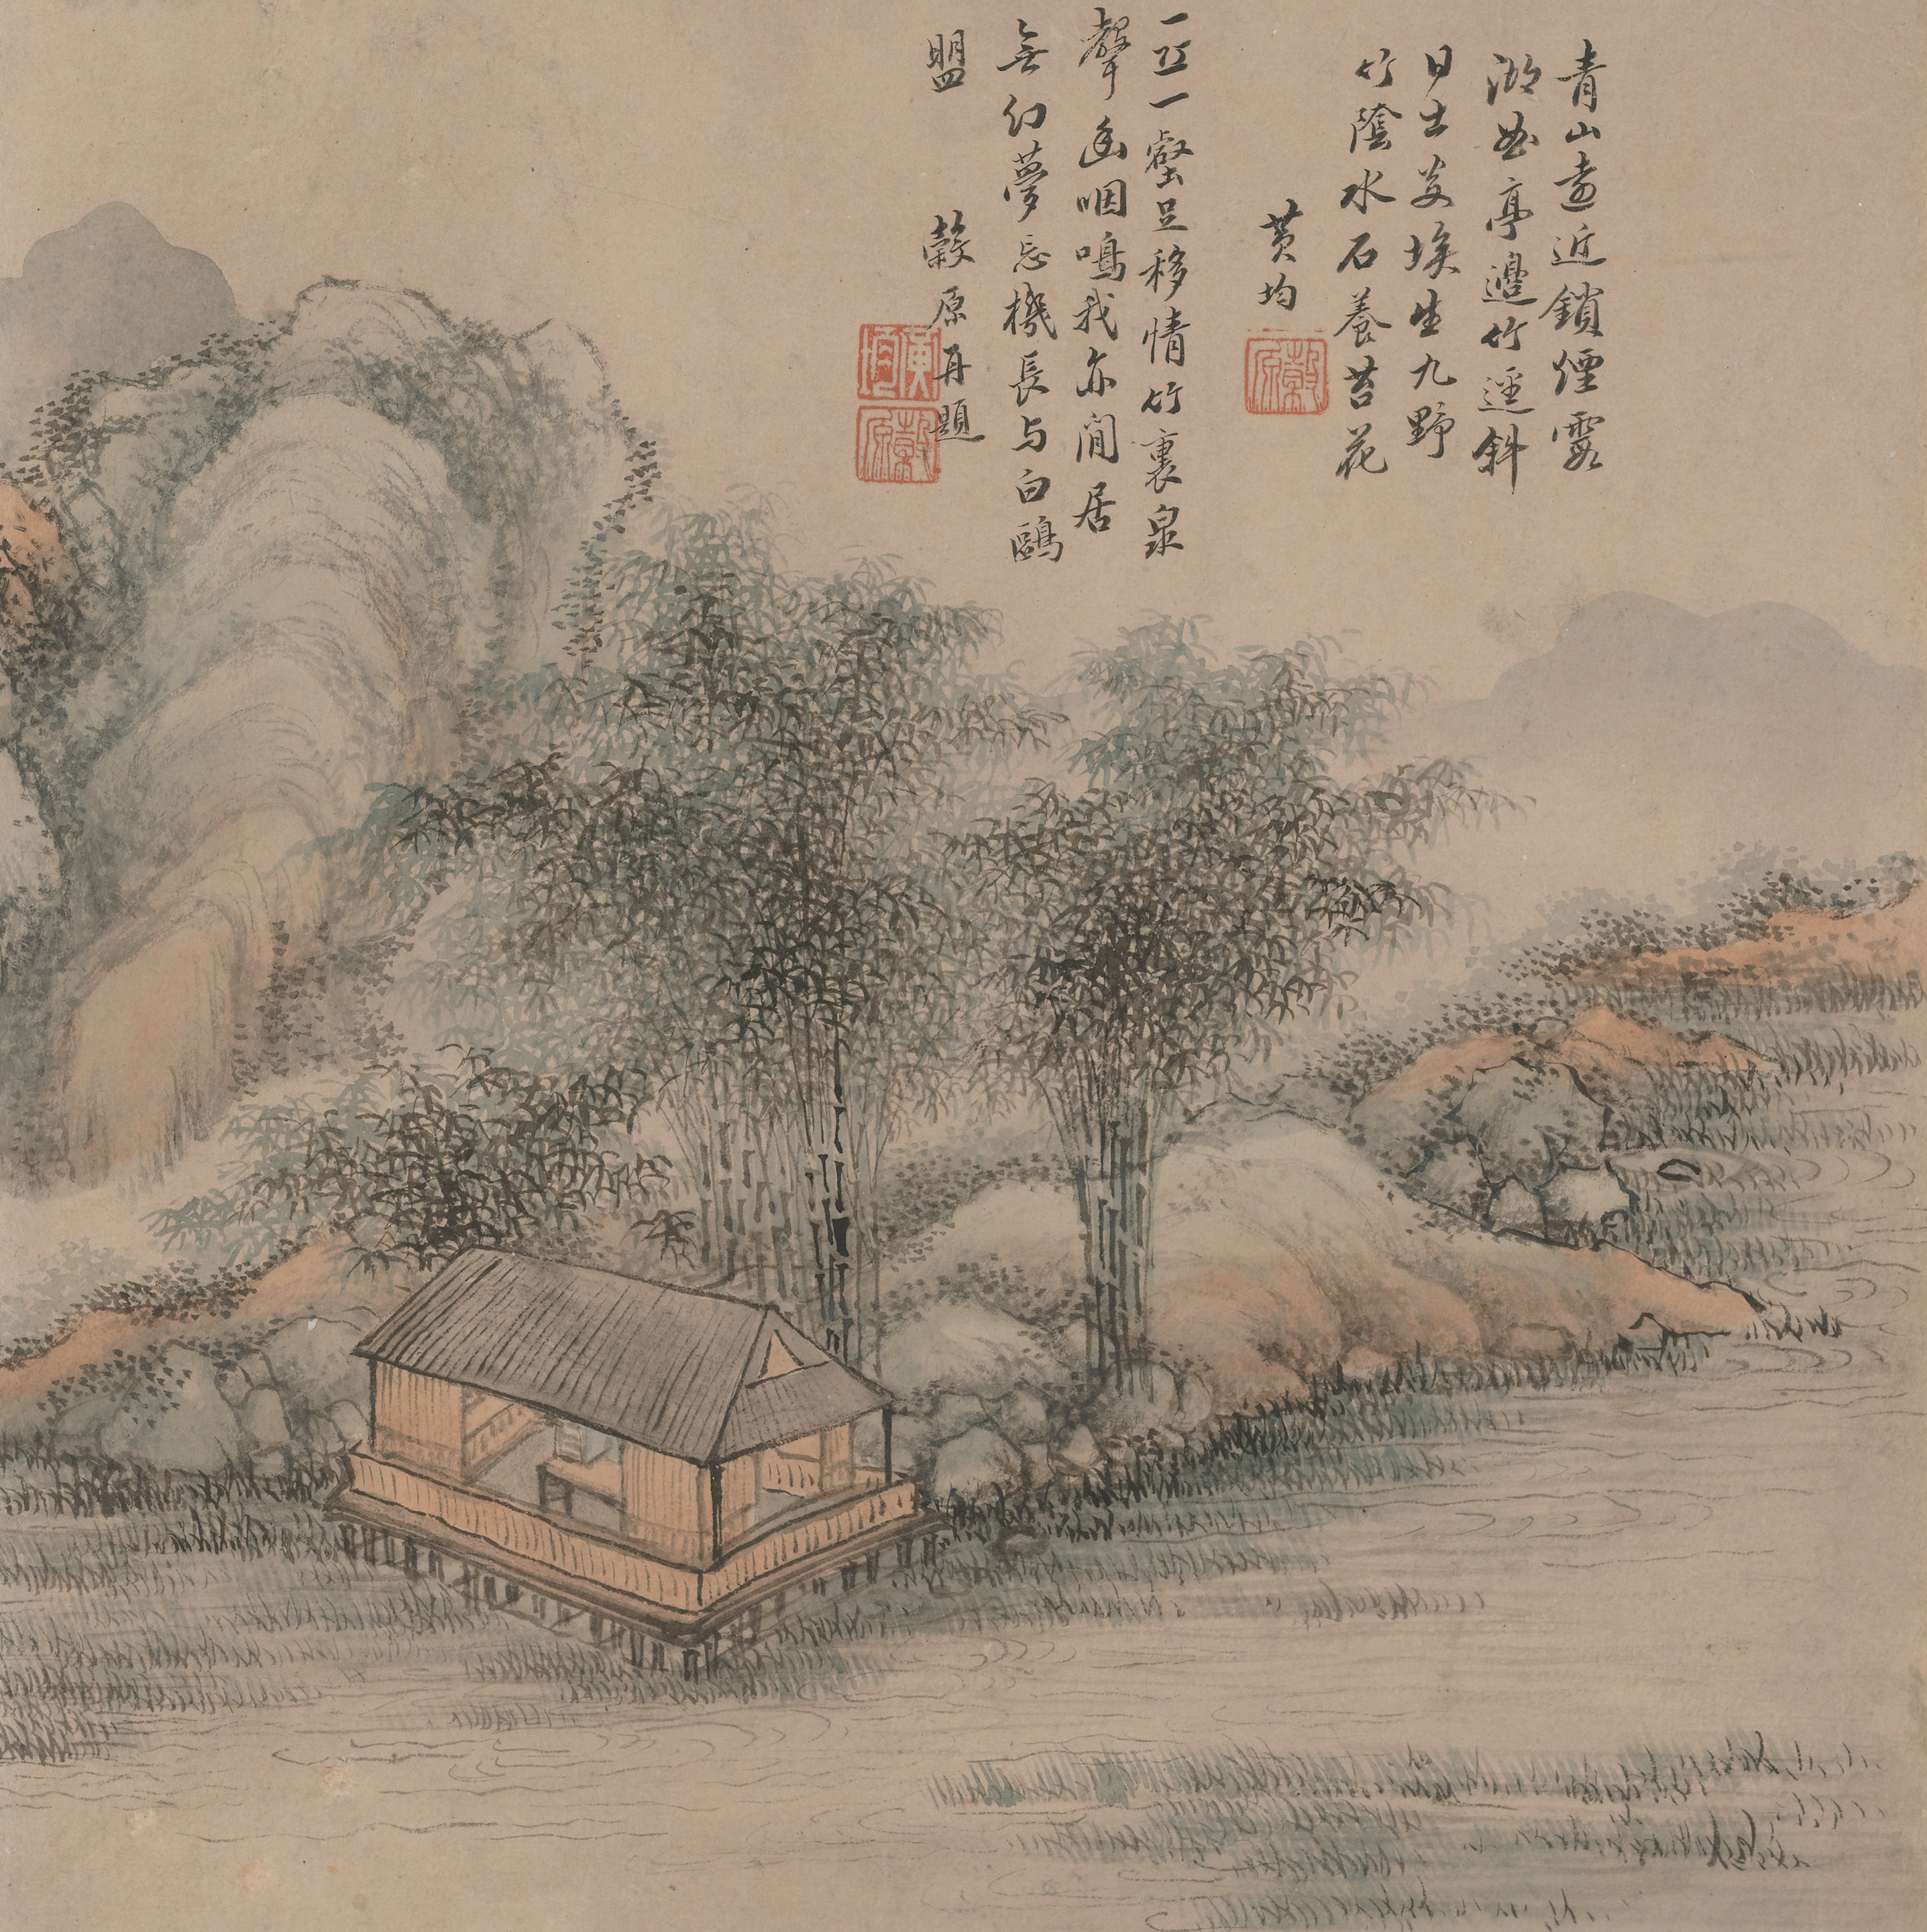 青山遠近鎖煙霞
湖曲亭邊竹逕斜
日炎埃生九野
竹陰水石養苔花
黃均
穀原
一丘一壑足移情竹裏泉
聲幽咽鳴我亦閒居
無幻夢忘機長与白鷗
盟 穀原再題
黃均
穀原